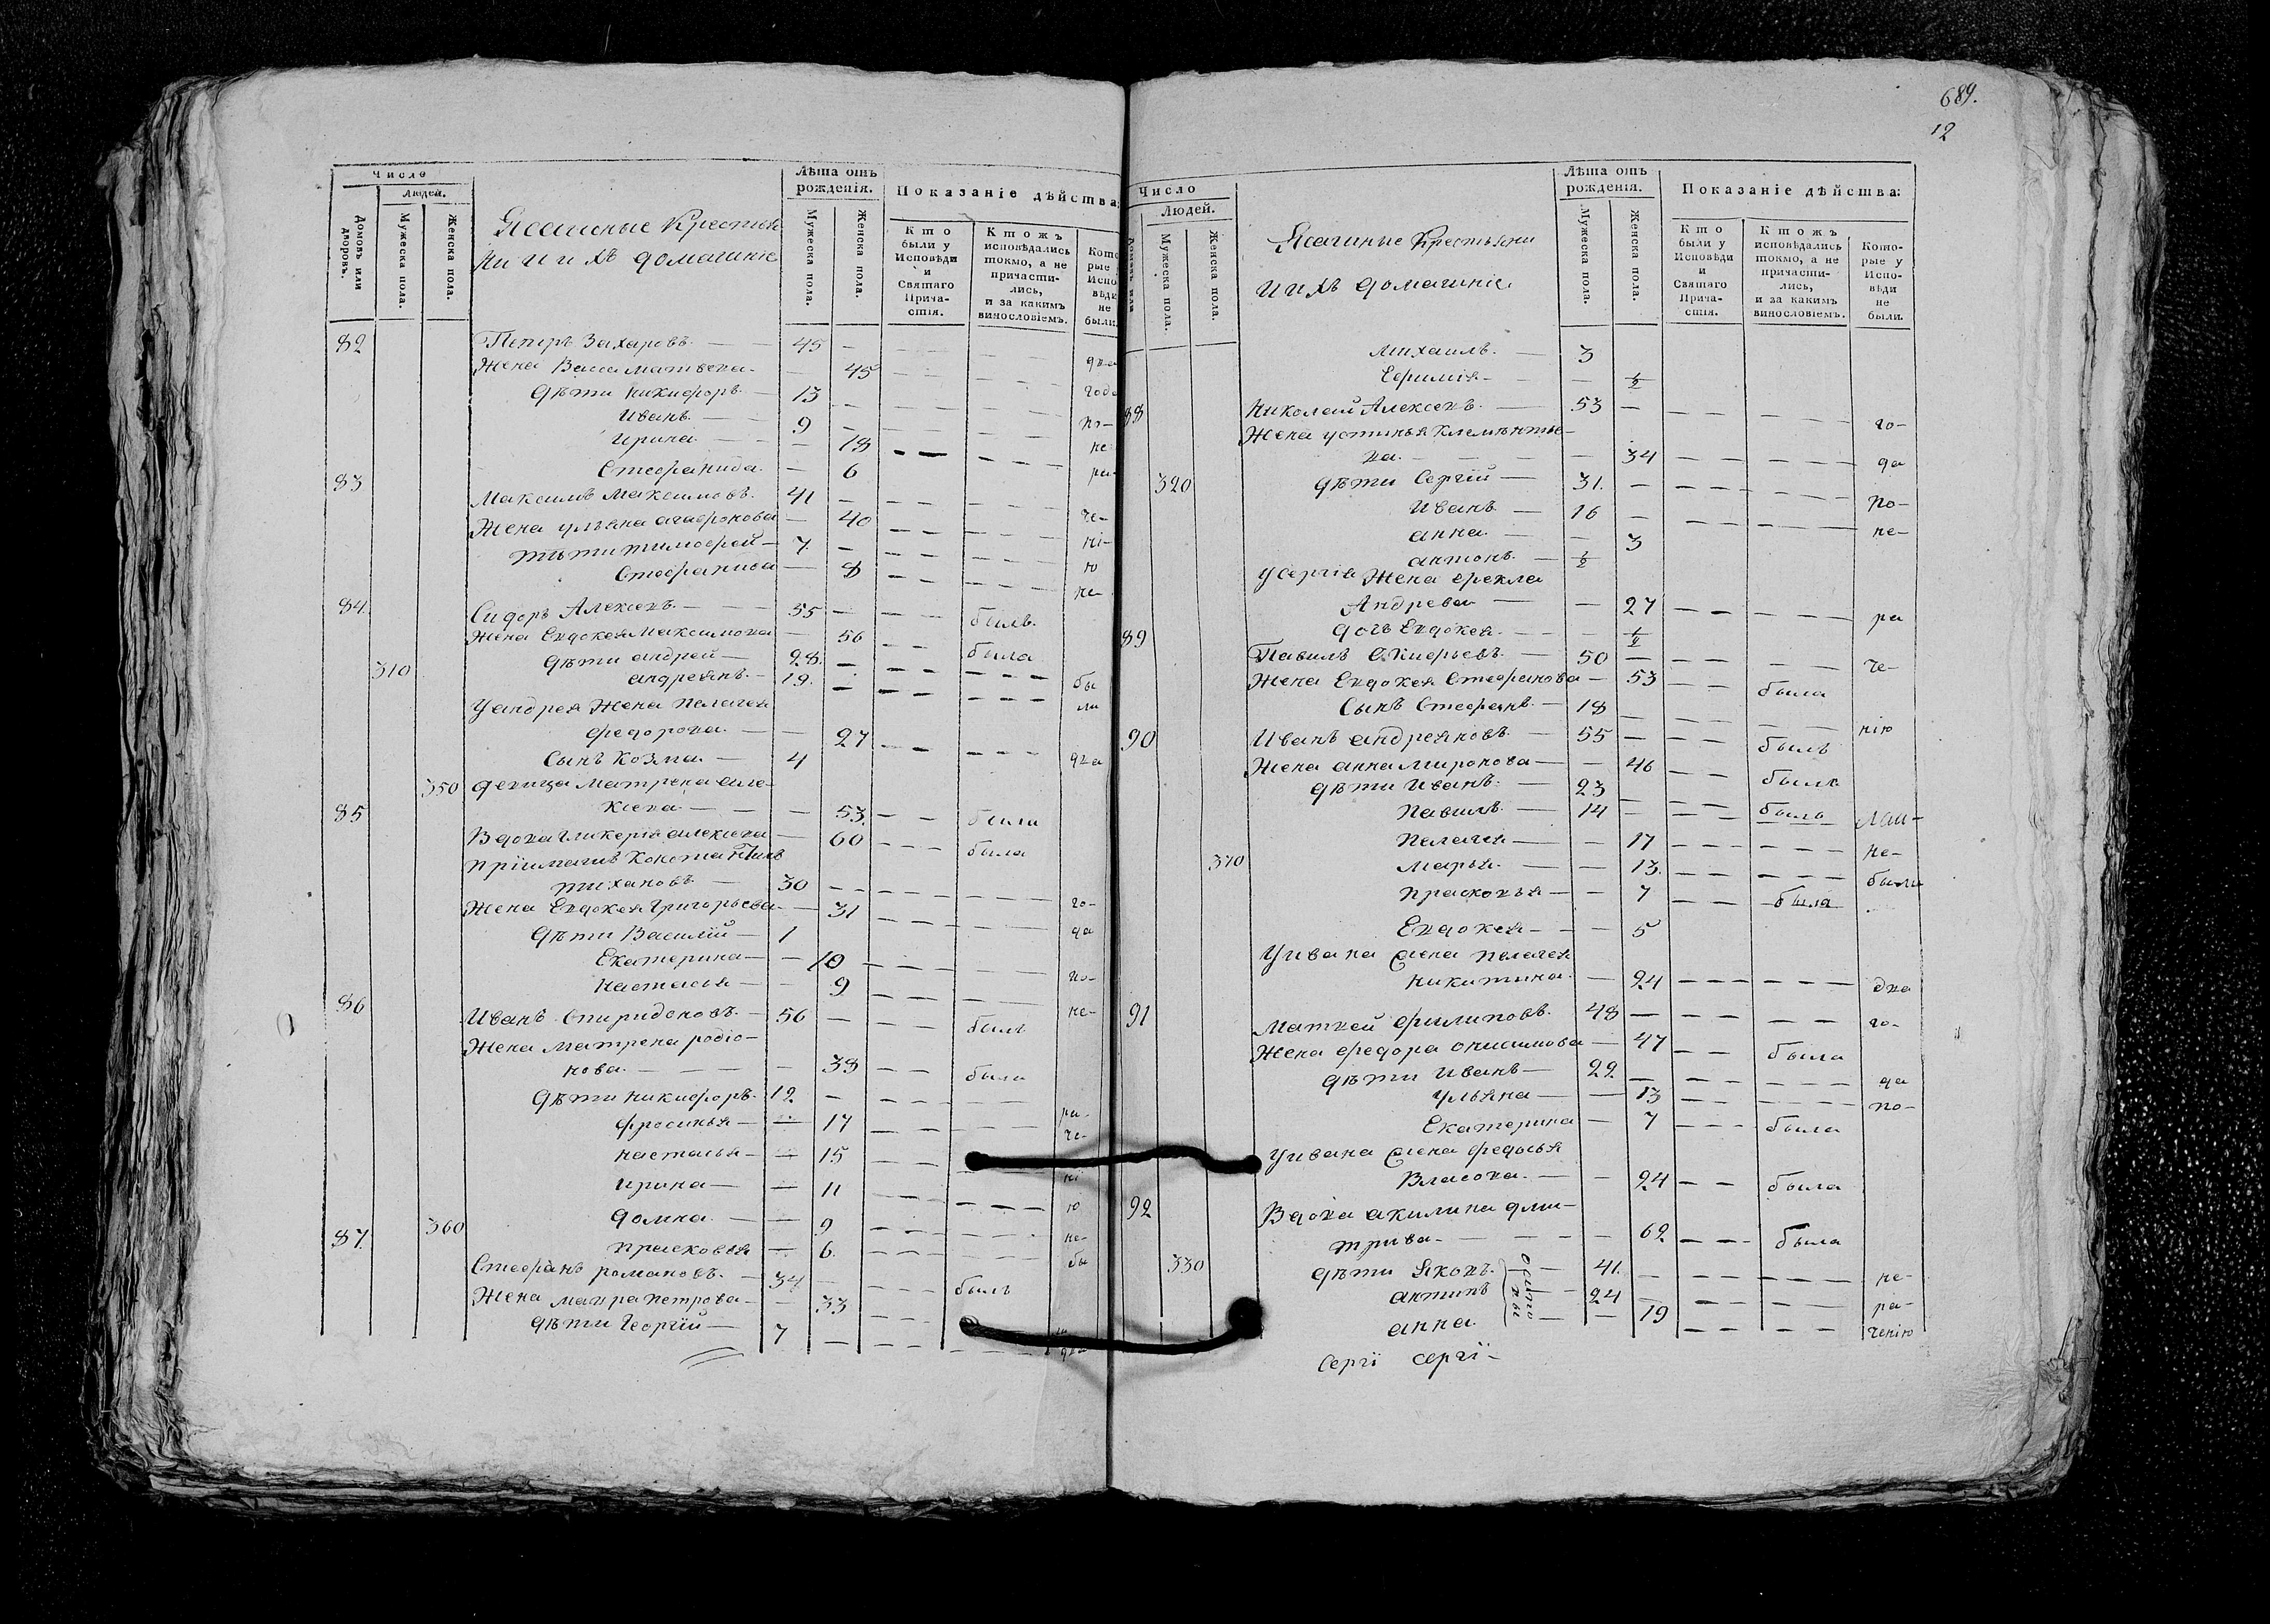 Число
Людей.
Домовъ или дворовъ.
Мужеска пола.
Женска пола.
Ясашные Крестья
ни и ихъ домашніе
Лѣта отъ
рожденія.
Мужеска пола.
Женска пола.
Показаніе дѣйства
Кто
были у
Исповѣди
и
Святаго
Прича-
стія.
Ктожъ
исповѣдались
токмо, а не
причасти-
лись,
и за какимъ
винословіемъ.
Кото
рые
Испо
вѣди
не
были.
82 Петръ Захаровъ — 45 —
Жена Васса Матвева — 45 два
дѣти никифоръ — 13 — года
Иванъ — 9 — по-
Ирина — 18 не
Стефанида — 6 ра-
83 Максимъ Максимовъ 41 —
Жена ульяна агафонова — 40 че-
дѣти тимофей — 7 — ні-
Стефанида — 8 ю
не
84 Сидоръ Алексеевъ — 55 — былъ
Жена Евдокея Максимова — 56 была
дѣти андрей — 28 —
310 андреянъ — 19 — бы
ли
Уандрея Жена Пелагея
федорова — 27
Сынъ Козма — 4 два
350 девица Матрена але-
ксева — 53 была
85 Вдова Гликерія алексева — 60 была
пріимышъ Константинъ
тихановъ — 30 —
Жена Евдокея Григорьева — 31 го-
дѣти Василій — 1 да
Екатерина — 10
настасья — 9 по-
не-
86 Иванъ Спиридоновъ — 56 — былъ
Жена матрена родіо-
нова — 38 была
дѣти никифоръ 12 —
фросинья — 17 ра-
че-
настасья — 15
Ирина — 11 ні
ю
360 домна — 9 не-
прасковья — 6 бы
87 Стефанъ романовъ — 34 — былъ
Жена мавра петрова — 33
дѣти Георгій — 7 —
689.
12
Число
Людей.
Мужеска пола.
Женска пола.
Ясашные Крестьяни
и ихъ домашніе
Лѣта отъ
рожденія.
Мужеска пола.
Женска пола.
Показаніе дѣйства:
Кто
были у
Исповѣди
и
Святаго
Прича-
стія.
Ктожъ
исповѣдались
токмо, а не
причасти-
лись,
и за какимъ
винословіемъ.
Кото-
рые у
Испо-
вѣди
не
были.
Михаилъ — 3
Ефимія — ½
88 Николай Алексеевъ — 53 — го-
Жена устинья Клементье-
ва — 34 да
320 дѣти Сергій — 31 — по-
Иванъ — 16 — не-
анна — 3
антонъ — ½
у Сергія Жена фекла
Андрева — 27 ра
дочь Евдокея — ½
89 Павилъ — 50 — че-
Жена Евдокея Стефанова — 53 была
Сынъ Стефанъ — 18 нію
90 Иванъ андреяновъ — 55 — былъ
Жена анна миронова — 46 была
дѣти Иванъ — 23
Павилъ — 14 — былъ
Пелагея — 17 не-
370 Марья — 13 были
прасковья — 7 была
Евдокея — 5
Уивана Жена пелагея
никитина — 24 два
91 Матвей филиповъ — 48 — го-
Жена федора онисимова — 47 была
дѣти Иванъ — 22 да
Ульяна — 13 по-
Екатерина — 7 была
Уивана Жена федосья
Власова — 24 была
92 Вдова акилина дми-
трива — 62 была
330 дѣти яковъ — 41 не-
антипъ — 24 ра-
анна — 19 ченію
Сергі Сергі-